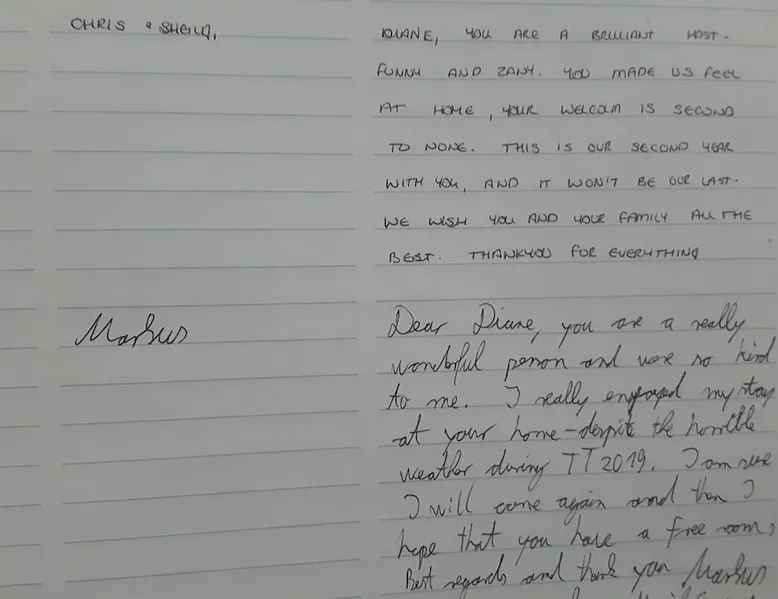 CHRIS & SHEILA,
DIANE, YOU ARE A BRILLIANT HOST.
FUNNY AND ZANY. YOU MADE US FEEL
AT HOME, YOUR WELCOM IS SECOND
TO NONE. THIS IS OUR SECOND YEAR
WITH YOU, AND IT WON'T BE OUR LAST.
WE WISH YOU AND YOUR FAMILY ALL THE
BEST. THANKYOU FOR EVERYTHING
Markus
Dear Diane, you are a really
wonderful person and were so kind
to me. I really enjoyed my stay
at your home - despite the horrible
weather during TT2019. I am sure
I will come again and then I
hope that you have a free room,
Best regards and thank you Markus